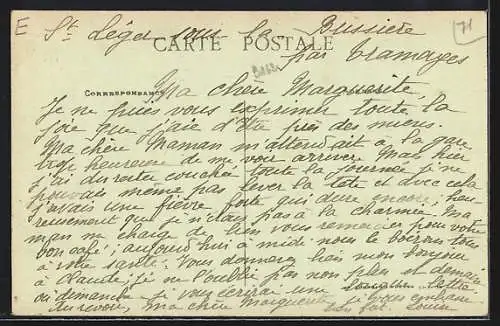 E St Léger sous la Bussière 71
CARTE POSTALE
par Tramayes
CORRESPONDANCE Ma chère Marguerite
Je ne puis vous exprimer toute la
joie que j'aie d'être près des miens.
Ma chère Maman m'attendait à la gare
trop heureuse de me voir arriver. Mais hier
j'ai du rester couchée toute la journée je ne
pouvais même pas lever la tête et avec cela
j'avais une fièvre forte qui dure encore; heu-
reusement que je n'étais pas à la charmée. Ma
man me charge de bien vous remercier pour votre
bon café; aujourd'hui à midi nous le boirons tous
à votre santé. Vous donnerez bien mon bonjour
à Claude, je ne l'oublie pas non plus et demain
ou dimanche je vous écrirai une lettre
Au revoir, ma chère Marguerite je vous embrasse
bien fort. Louise